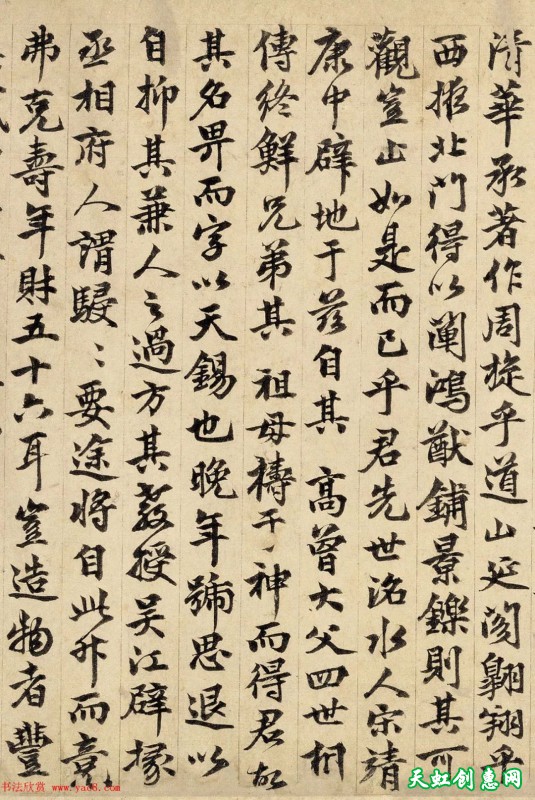 清華承著作周旋乎道山延閣翱翔乎
西掖北門得以闡鴻猷鋪景鑠則其可
觀豈止如是而已乎君先世洺水人宋靖
康中辟地于茲自其 高曾大父四世相
傳終鮮兄弟其 祖母禱于神而得君故
其名畀而字以天錫也晚年號思退以
自抑其兼人之過方其教授吴江辟掾
丞相府人謂駸〻要途將自此升而竟
弗克壽年財五十六耳豈造物者豐
书法欣赏 www.yac8.com
天虹创惠网